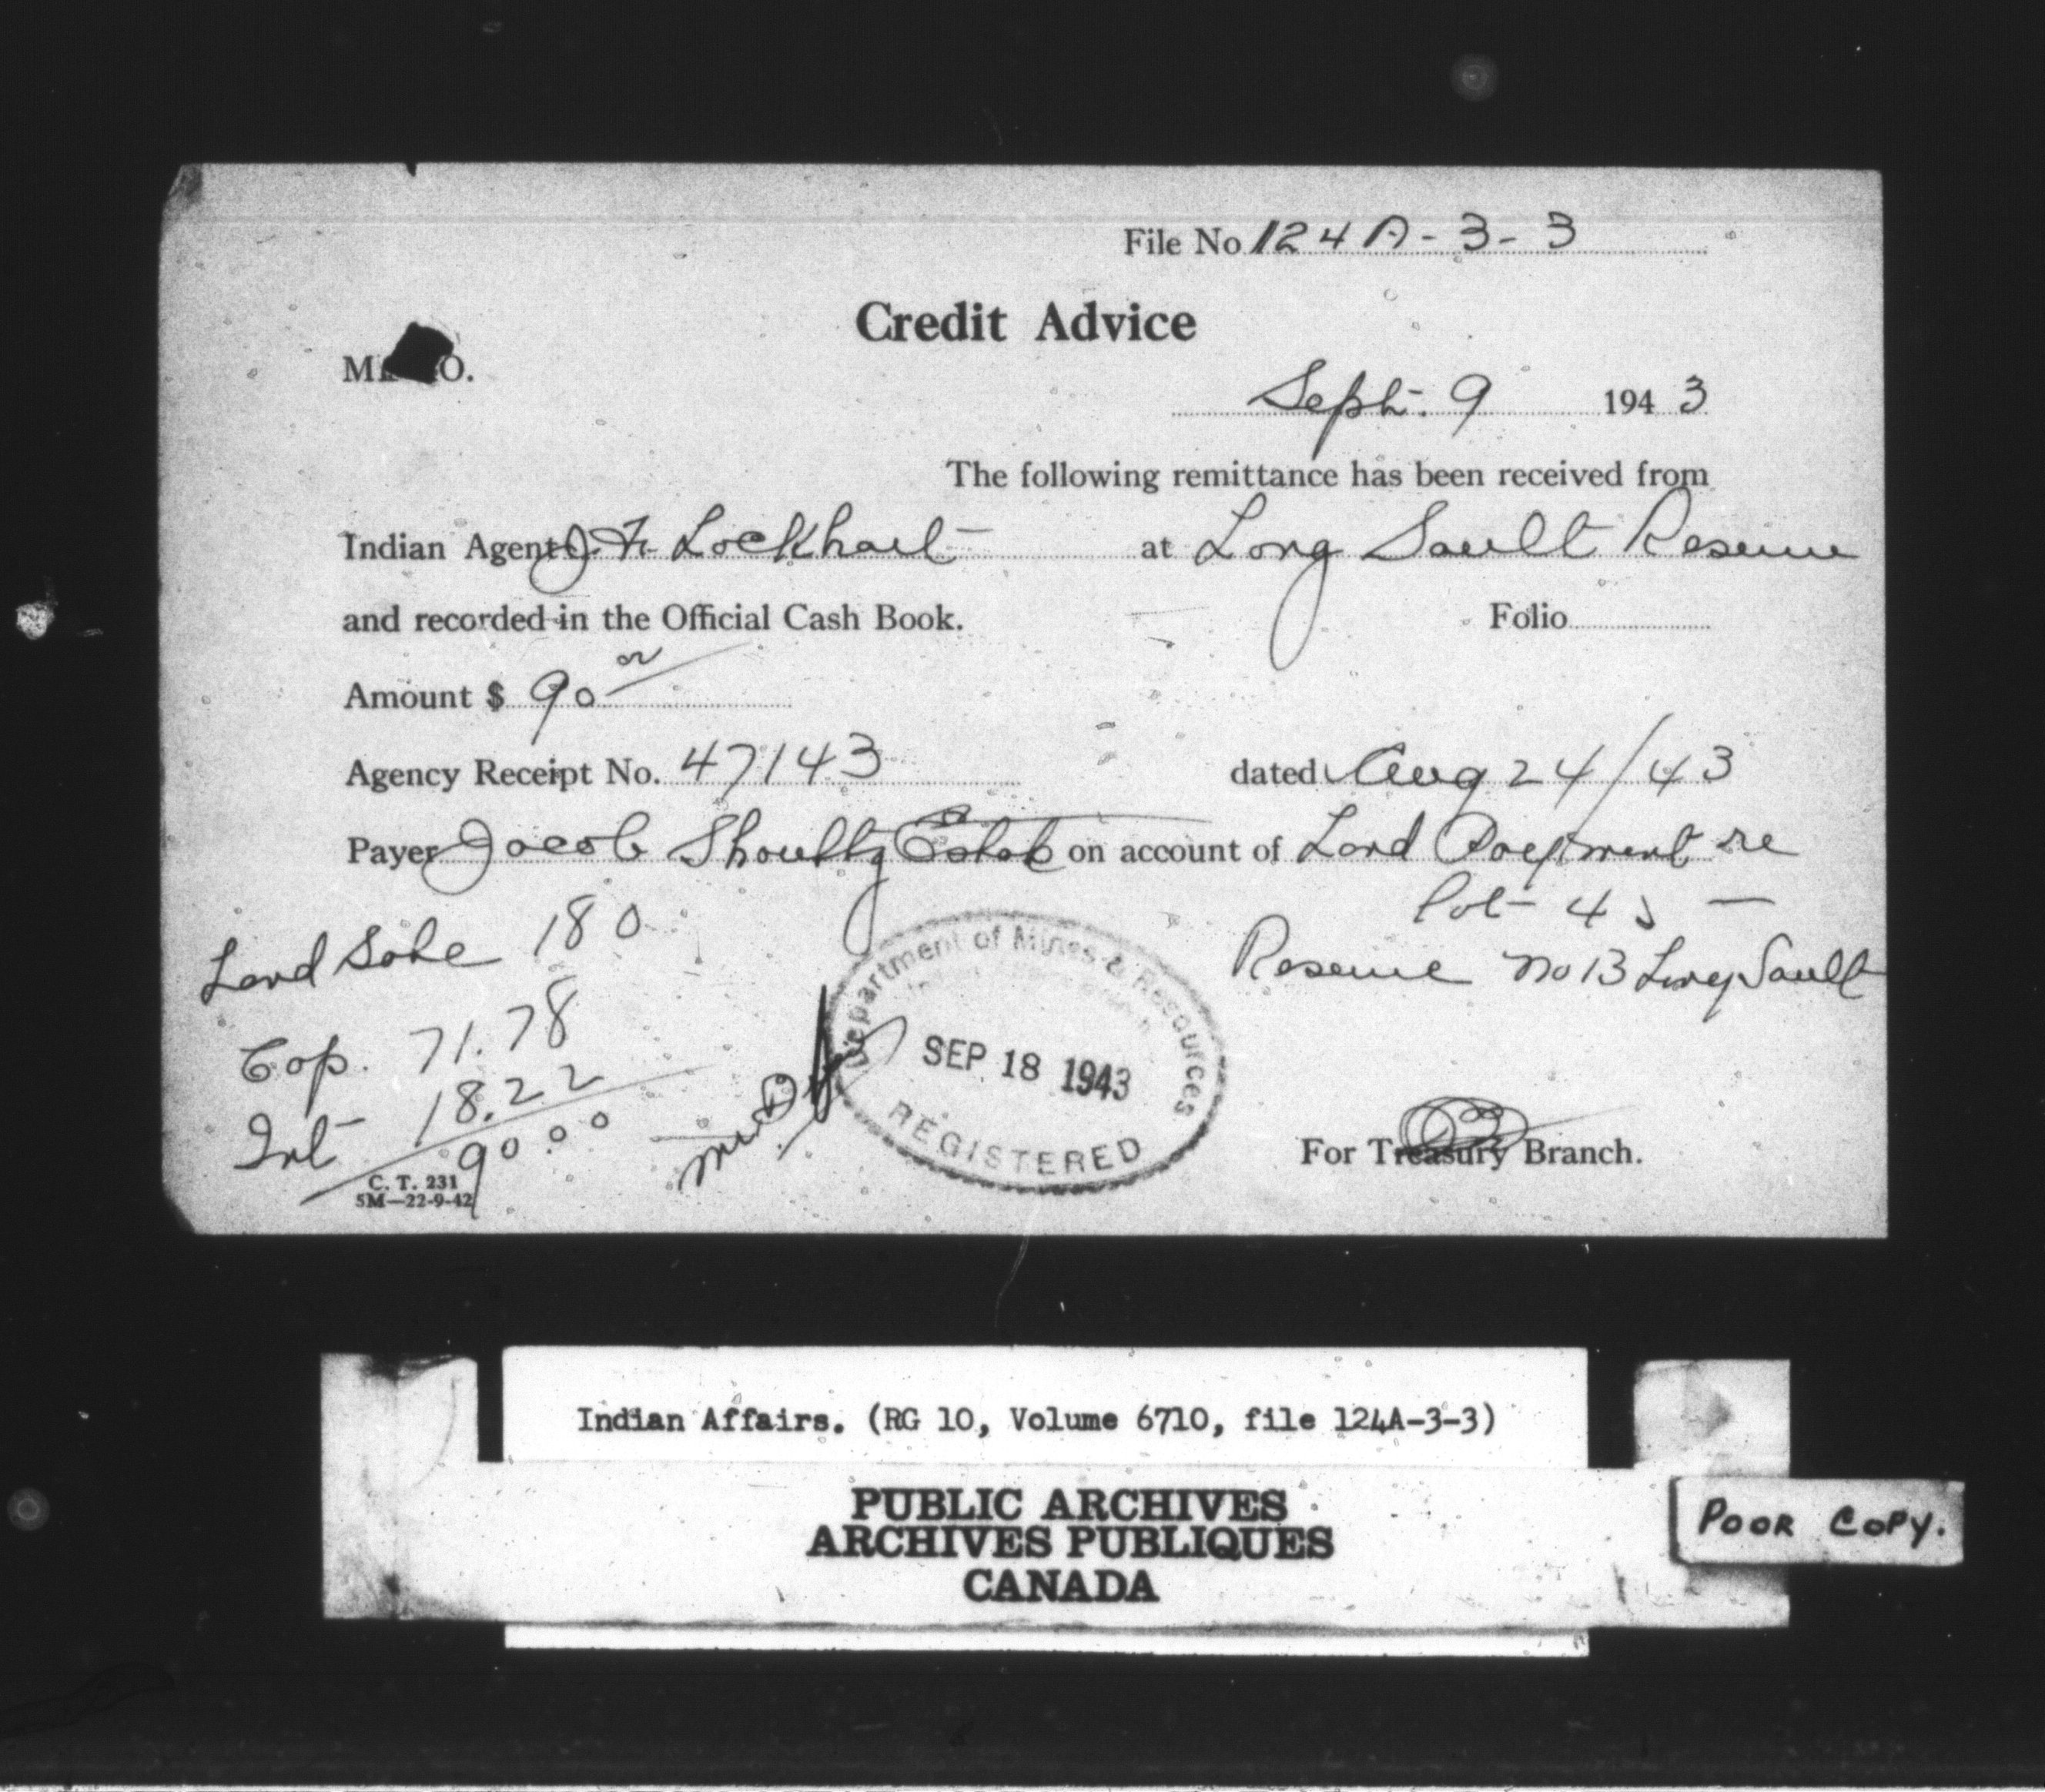 File No 124A-3-3
Credit Advice
M O.
Sept. 9 1943
The following remittance has been received from
Indian Agent J. F. Lockhart at Long Sault Reserve
and recorded in the Official Cash Book. Folio
Amount $ 90 00
Agency Receipt No. 47143 dated Aug 24/43
Payer Jacob Shoultz Estate on account of Land Payment re
lot 45
Reserve no 13 Long Sault
Land Sale 180
Cap. 71.78
Int 18.22
90.00
Department of Mines & Resources
SEP 18 1943
REGISTERED
For Treasury Branch.
C. T. 231
5M—22-9-42
Indian Affairs. (RG 10, Volume 6710, file 124A-3-3)
PUBLIC ARCHIVES
ARCHIVES PUBLIQUES
CANADA
POOR COPY.